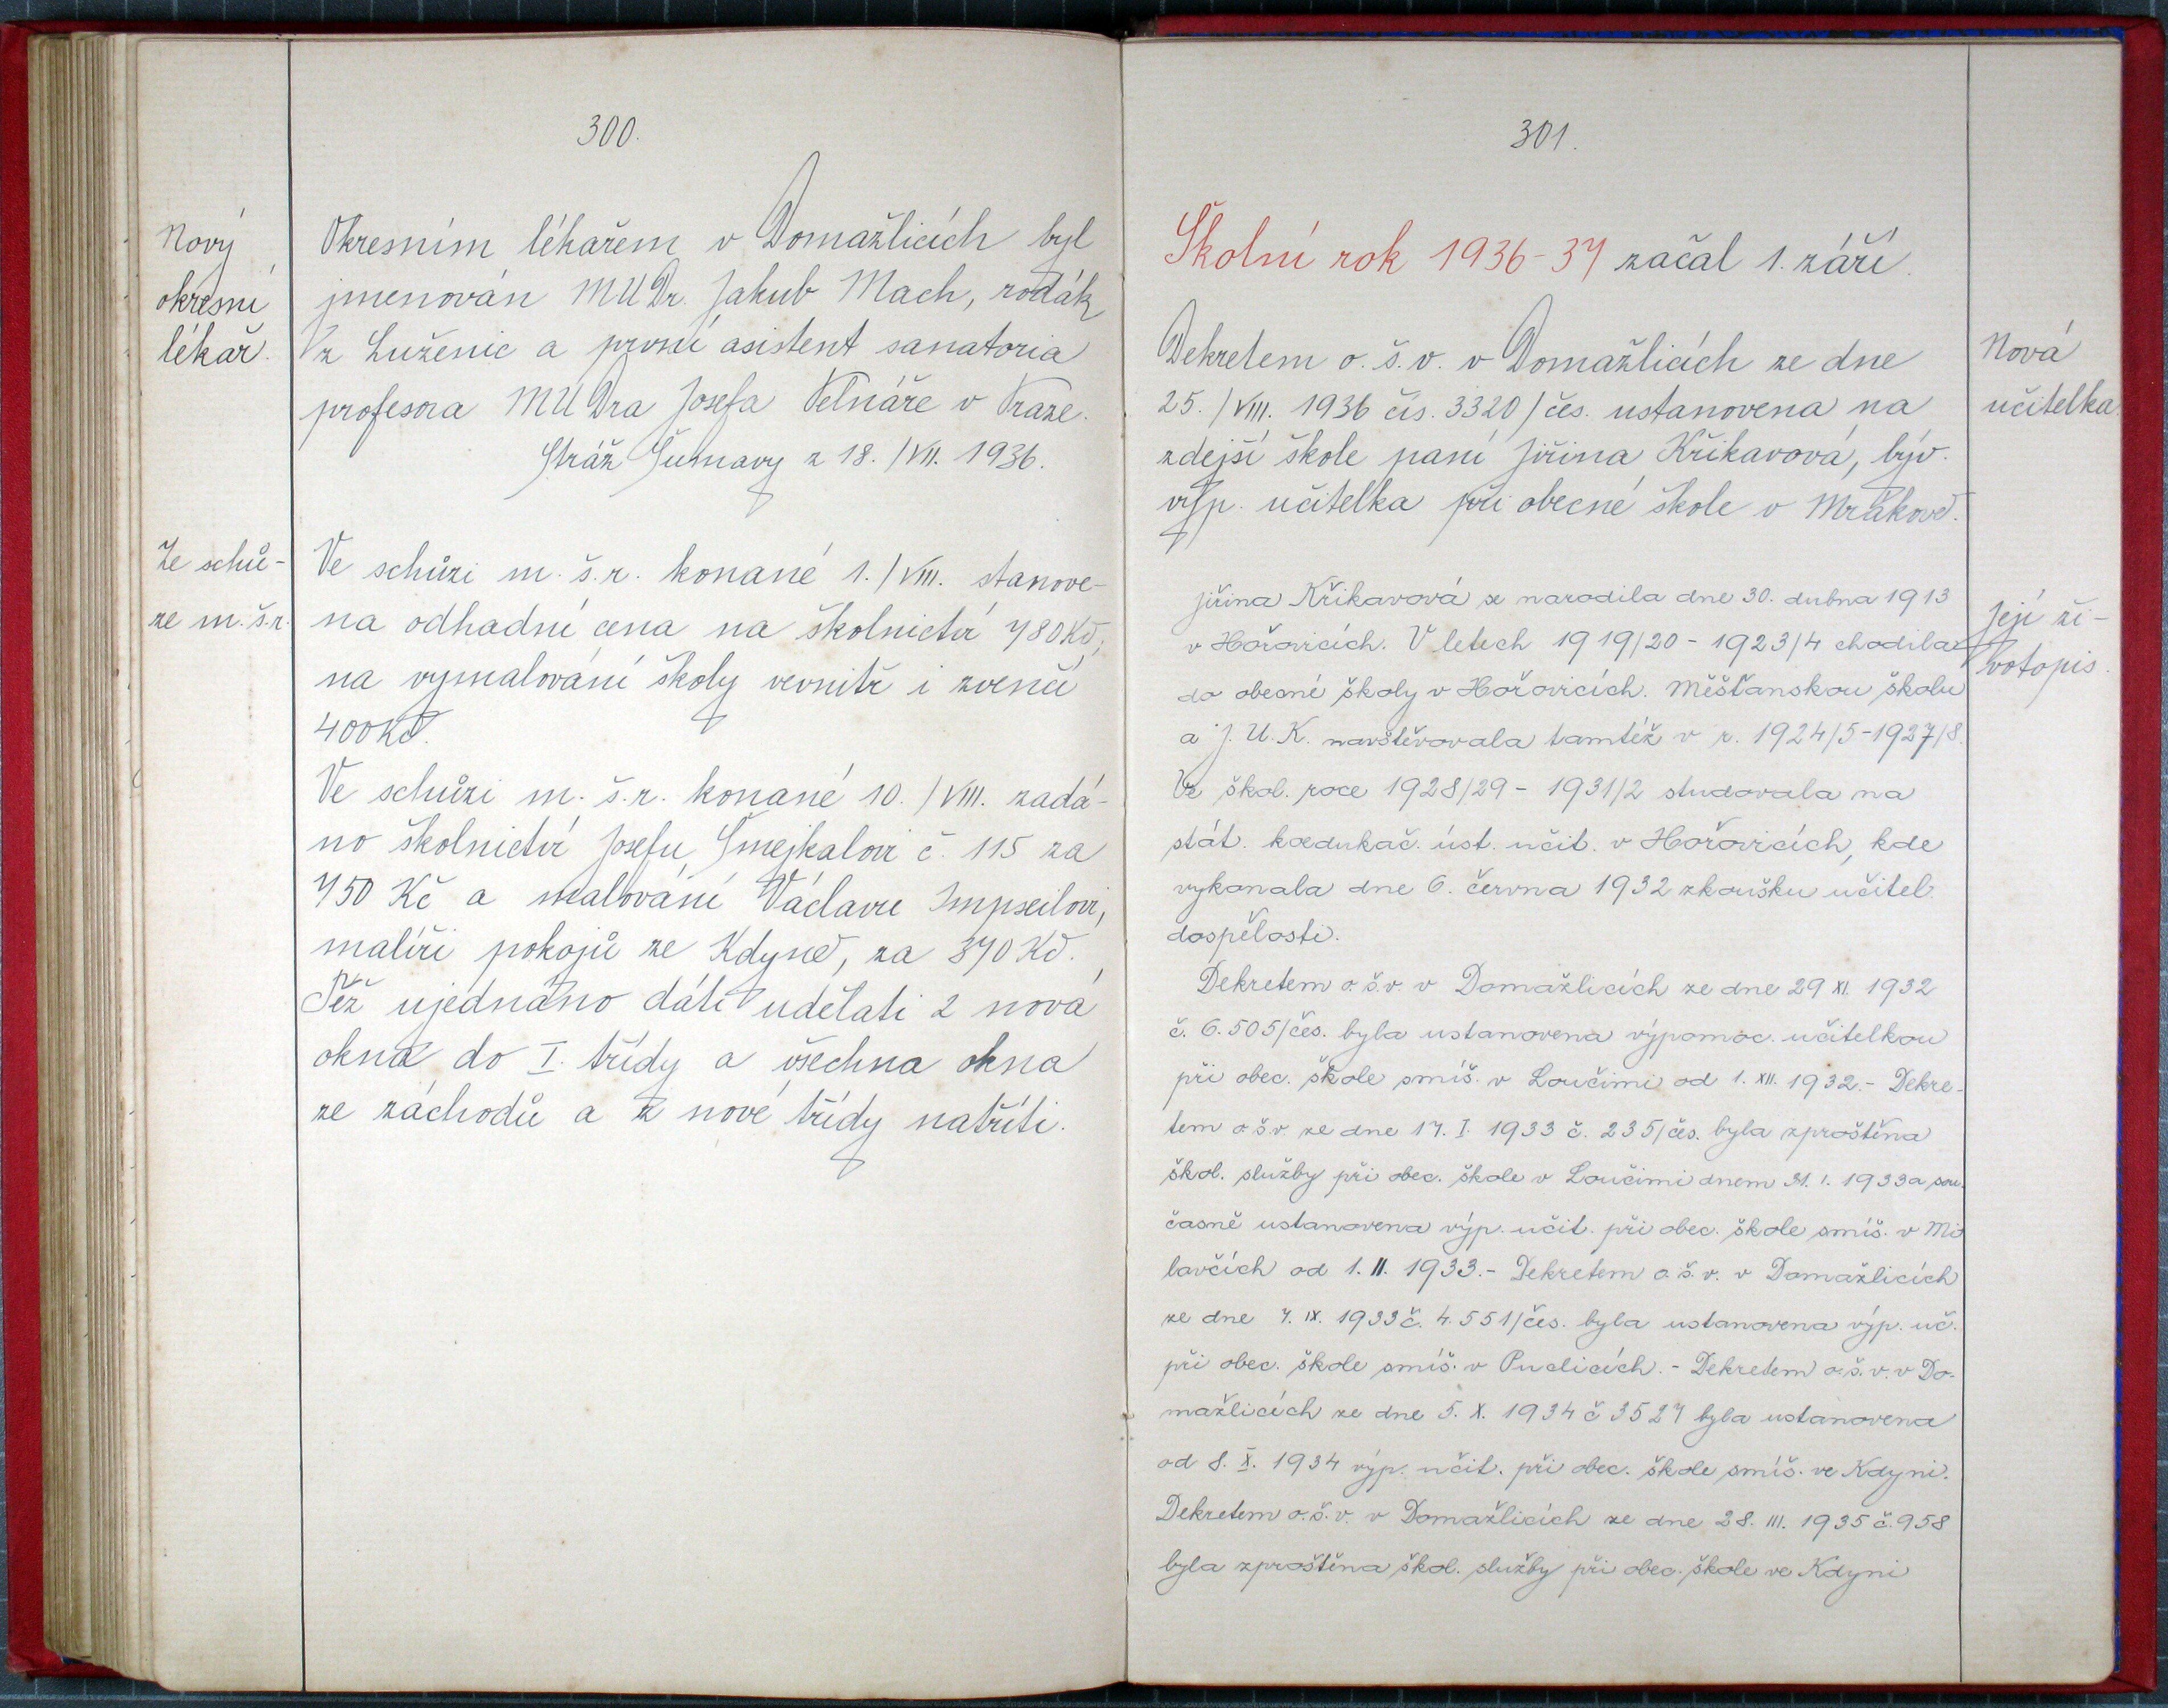 300.
Nový
okresní
lékař.
Okresním lékařem v Domažlicích byl
jmenován MUDr. Jakub Mach, rodák
z Luženic a první asistent sanatoria
profesora MUDra Josefa Pelnáře v Praze.
Stráž Šumavy z 18./VII. 1936.
Ze schů-
ze m. š. r.
Ve schůzi m. š. r. konané 1./VIII. stanove-
na odhadní cena na školnictví 780 Kč,
na vymalování školy vevnitř i zvenčí
400 Kč.
Ve schůzi m. š. r. konané 10./VIII. zadá-
no školnictví Josefu Šmejkalovi č. 115 za
750 Kč a malování Václavu
malíři pokojů ze Kdyně, za 370 Kč.
Též ujednáno dáti udělati 2 nová
okna do I. třídy a všechna okna
ze záchodů a z nové třídy natříti.
301.
Školní rok 1936-37 začal 1. září.
Dekretem o. š. v. v Domažlicích ze dne
25./VIII. 1936 čís. 3320/čes. ustanovena na
zdejší škole paní Jiřina Křikavová, býv.
výp. učitelka při obecné škole v Mrákově.
Nová
učitelka.
Jiřina Křikavová se narodila dne 30. dubna 1913
v Hořovicích. V letech 1919/20 - 1923/4 chodila
do obecné školy v Hořovicích. Měšťanskou školu
a J. U. K. navštěvovala tamtéž v r. 1924/5-1927/8.
Ve škol. roce 1928/29 - 1931/2 studovala na
stát. koedukač. úst. učit. v Hořovicích, kde
vykonala dne 6. června 1932 zkoušku učitel.
dospělosti.
Její ži-
votopis.
Dekretem o. š. v. v Domažlicích ze dne 29 XI. 1932
č. 6.505/čes. byla ustanovena výpomoc. učitelkou
při obec. škole smíš. v Loučimi od 1. XII. 1932. - Dekre-
tem o š v. ze dne 17. I. 1933 č. 235/čes. byla zproštěna
škol. služby při obec. škole v Loučimi dnem 31. 1. 1933 a sou-
časně ustanovena výp. učit. při obec. škole smíš. v Mi-
lavčích od 1. II. 1933. - Dekretem o. š. v. v Domažlicích
ze dne 7. IX. 1933 č. 4.551/čes. byla ustanovena výp. uč.
při obec. škole smíš. v Puclicích. - Dekretem o. š. v. v Do-
mažlicích ze dne 5. X. 1934 č 3527 byla ustanovena
od 8. X. 1934 výp. učit. při obec. škole smíš. ve Kdyni.
Dekretem o. š. v. v Domažlicích ze dne 28. III. 1935 č. 958
byla zproštěna škol. služby při obec. škole ve Kdyni